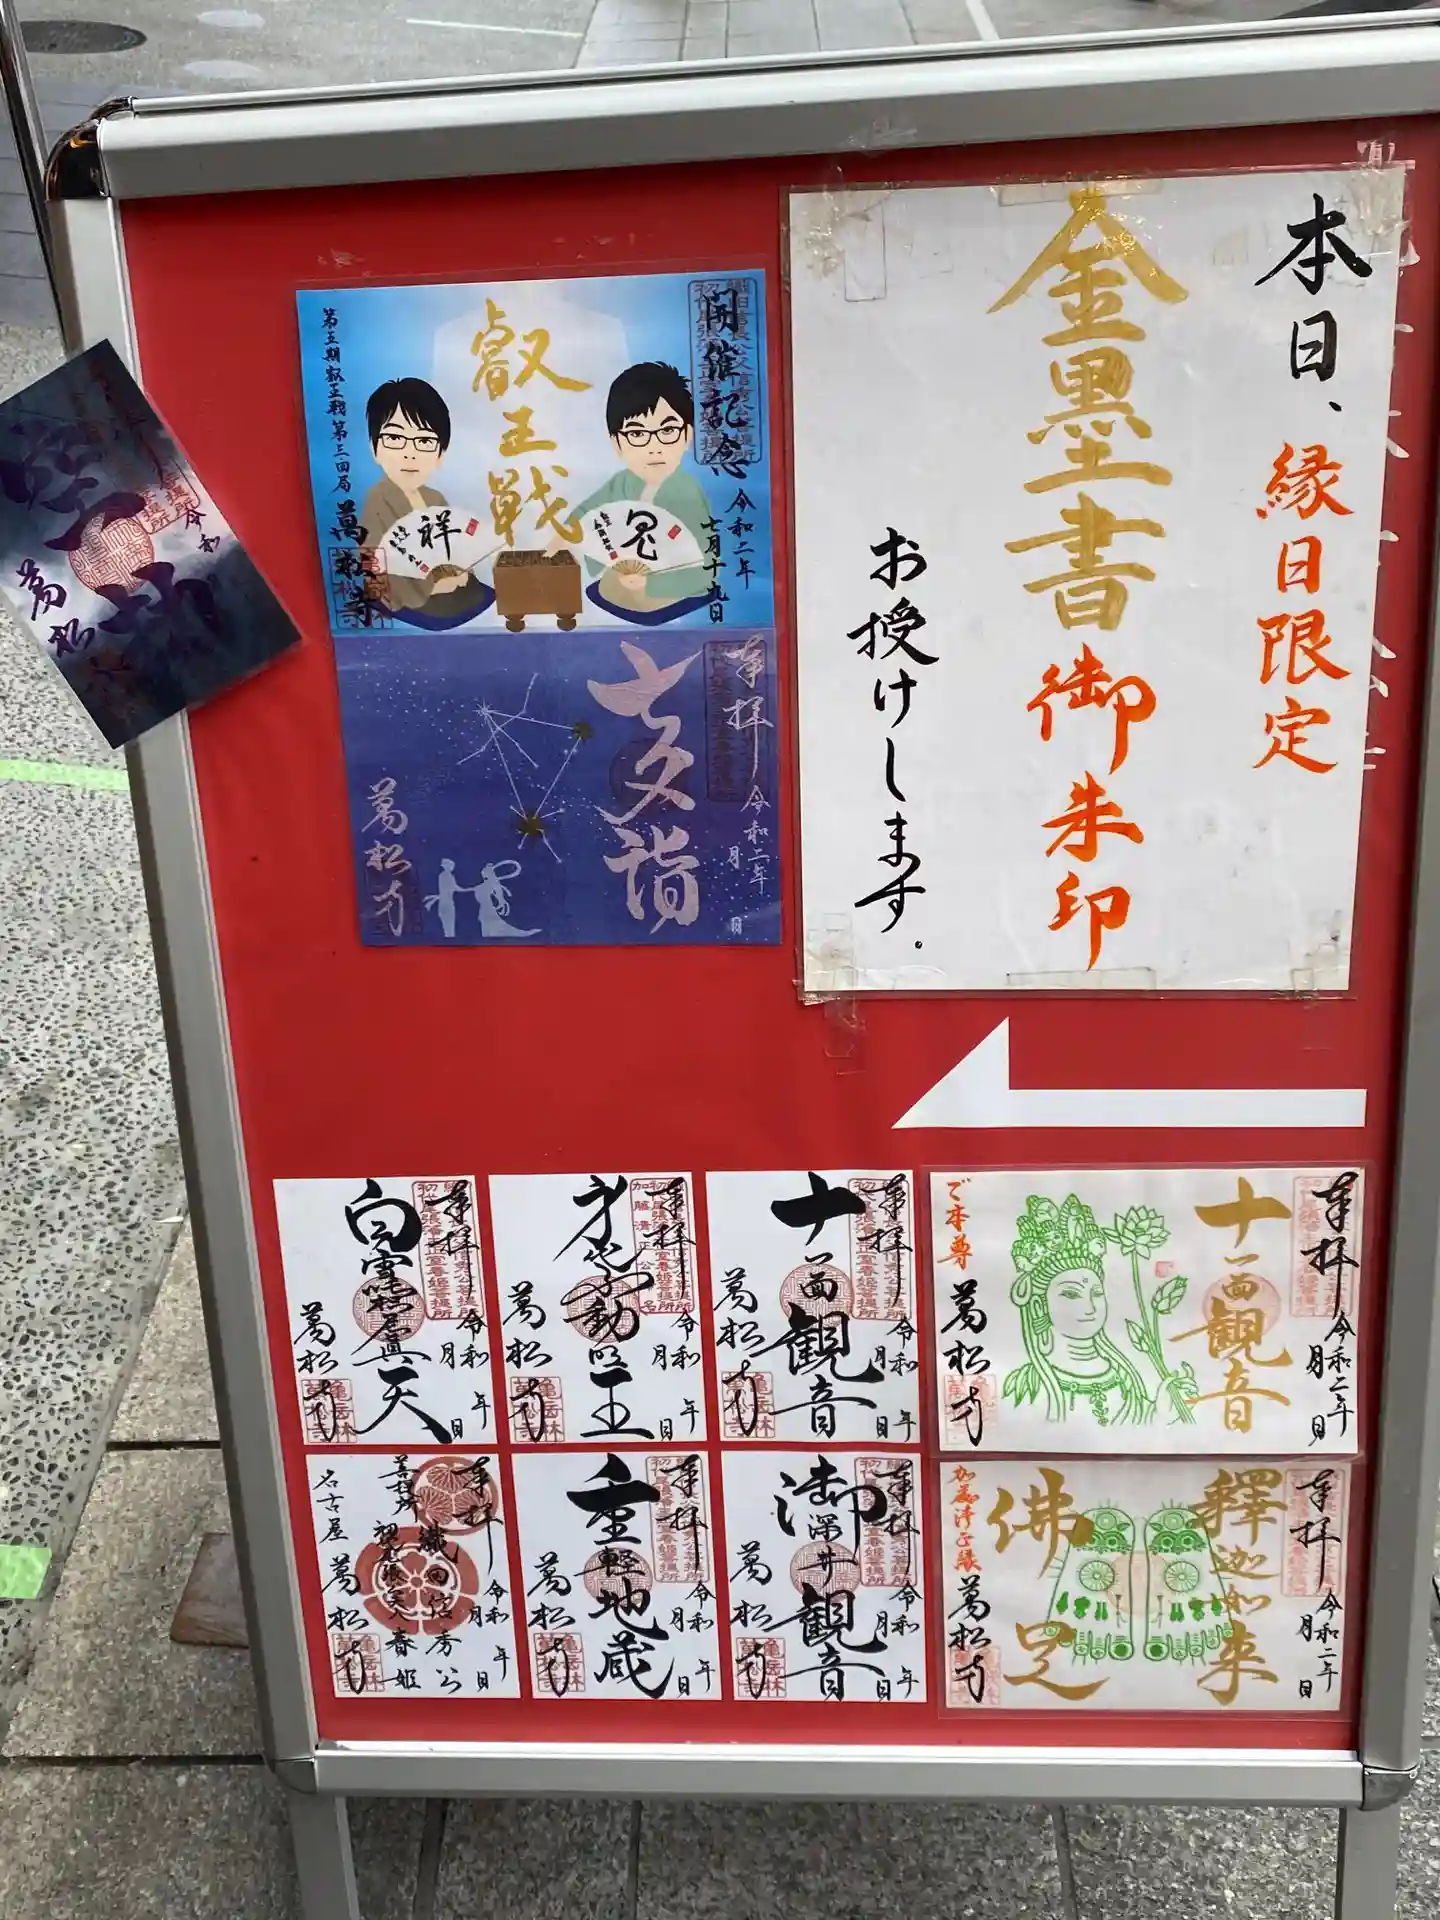 本日、縁日限定
金墨書御朱印
お授けします。
開催記念
令和二年
七月十九日
叡王戦
第五期叡王戦第三・四局
萬松寺
祥
奉拝
令和二年
月
日
七夕詣
萬松寺
令和
萬松寺
奉拝
令和
年
月
日
白雪稲荷眞天
萬松寺
奉拝
令和
年
月
日
身代不動明王
萬松寺
奉拝
令和
年
月
日
十一面観音
萬松寺
奉拝
令和二年
月
日
十一面観音
ご本尊
萬松寺
奉拝
令和
年
月
日
織田信秀公
菩提所
春姫
名古屋
萬松寺
奉拝
令和
年
月
日
重軽地蔵
萬松寺
奉拝
令和
年
月
日
御深井観音
萬松寺
奉拝
令和二年
月
日
釋迦如来
佛足
加藤清正公縁
萬松寺
亀岳林
萬松寺